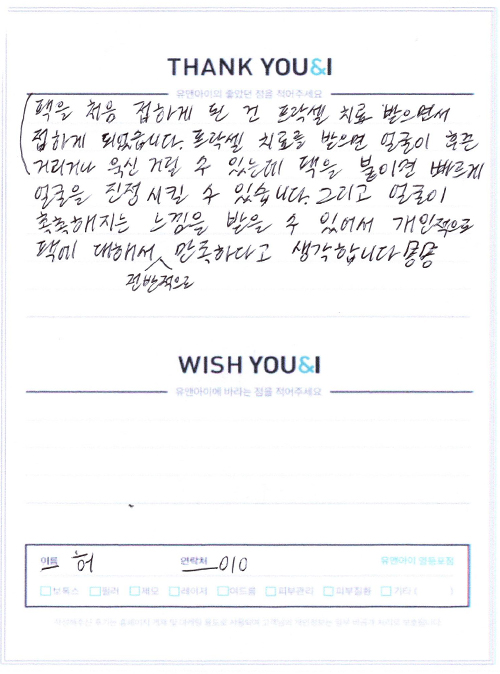 THANK YOU&I
유앤아이의 좋았던 점을 적어주세요
팩을 처음 접하게 된 건 프락셀 치료 받으면서
접하게 되었습니다. 프락셀 치료를 받으면 얼굴이 후끈
거리거나 욱신 거릴 수 있는데 팩을 붙이면 빠르게
얼굴을 진정 시킬 수 있습니다. 그리고 얼굴이
촉촉해지는 느낌을 받을 수 있어서 개인적으로
팩에 대해서 만족하다고 생각합니다
전반적으로
WISH YOU&I
유앤아이에 바라는 점을 적어주세요
이름 허 연락처 010 유앤아이 영등포점
보톡스 필러 제모 레이저 여드름 피부관리 피부질환 기타 ( )